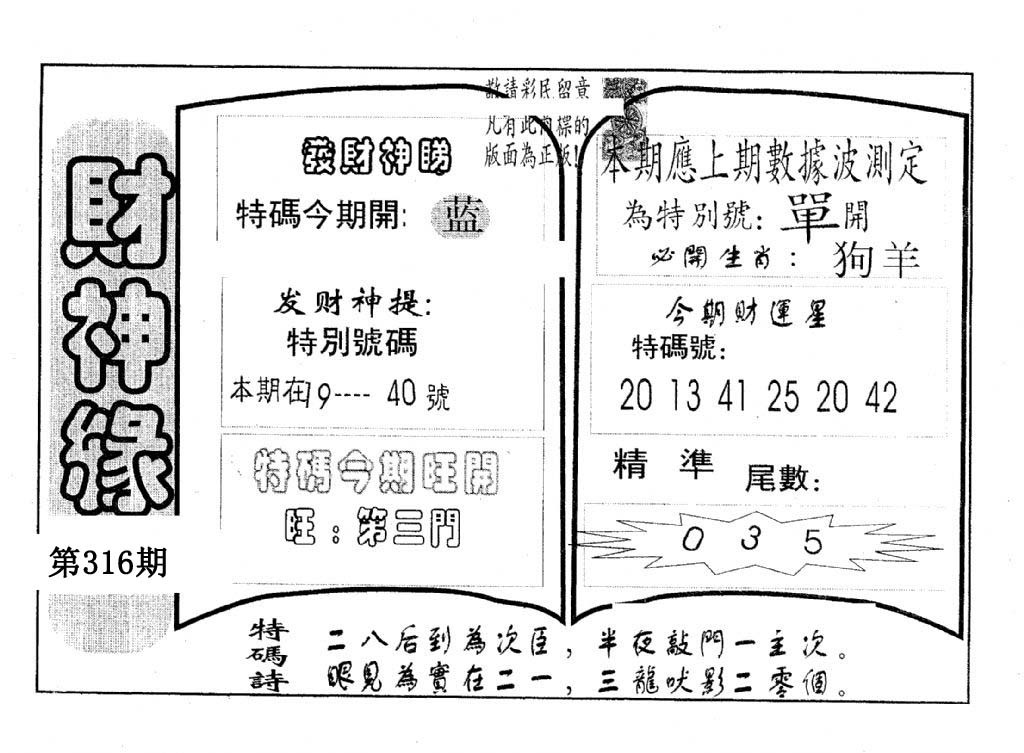 財神緣
第316期
敬請彩民留意
凡有此商標的
版面為正版!
發財神睇
特碼今期開: 蓝
发财神提:
特别號碼
本期在19---- 40號
特碼今期旺開
旺:第三門
本期應上期數據波測定
為特别號: 單開
必開生肖: 狗羊
今期财運星
特碼號:
20 13 41 25 20 42
精準 尾數:
0 3 5
特碼詩
二八后到為次臣,半夜敲門一主次。
眼見為實在二一,三龍吠影二零個。